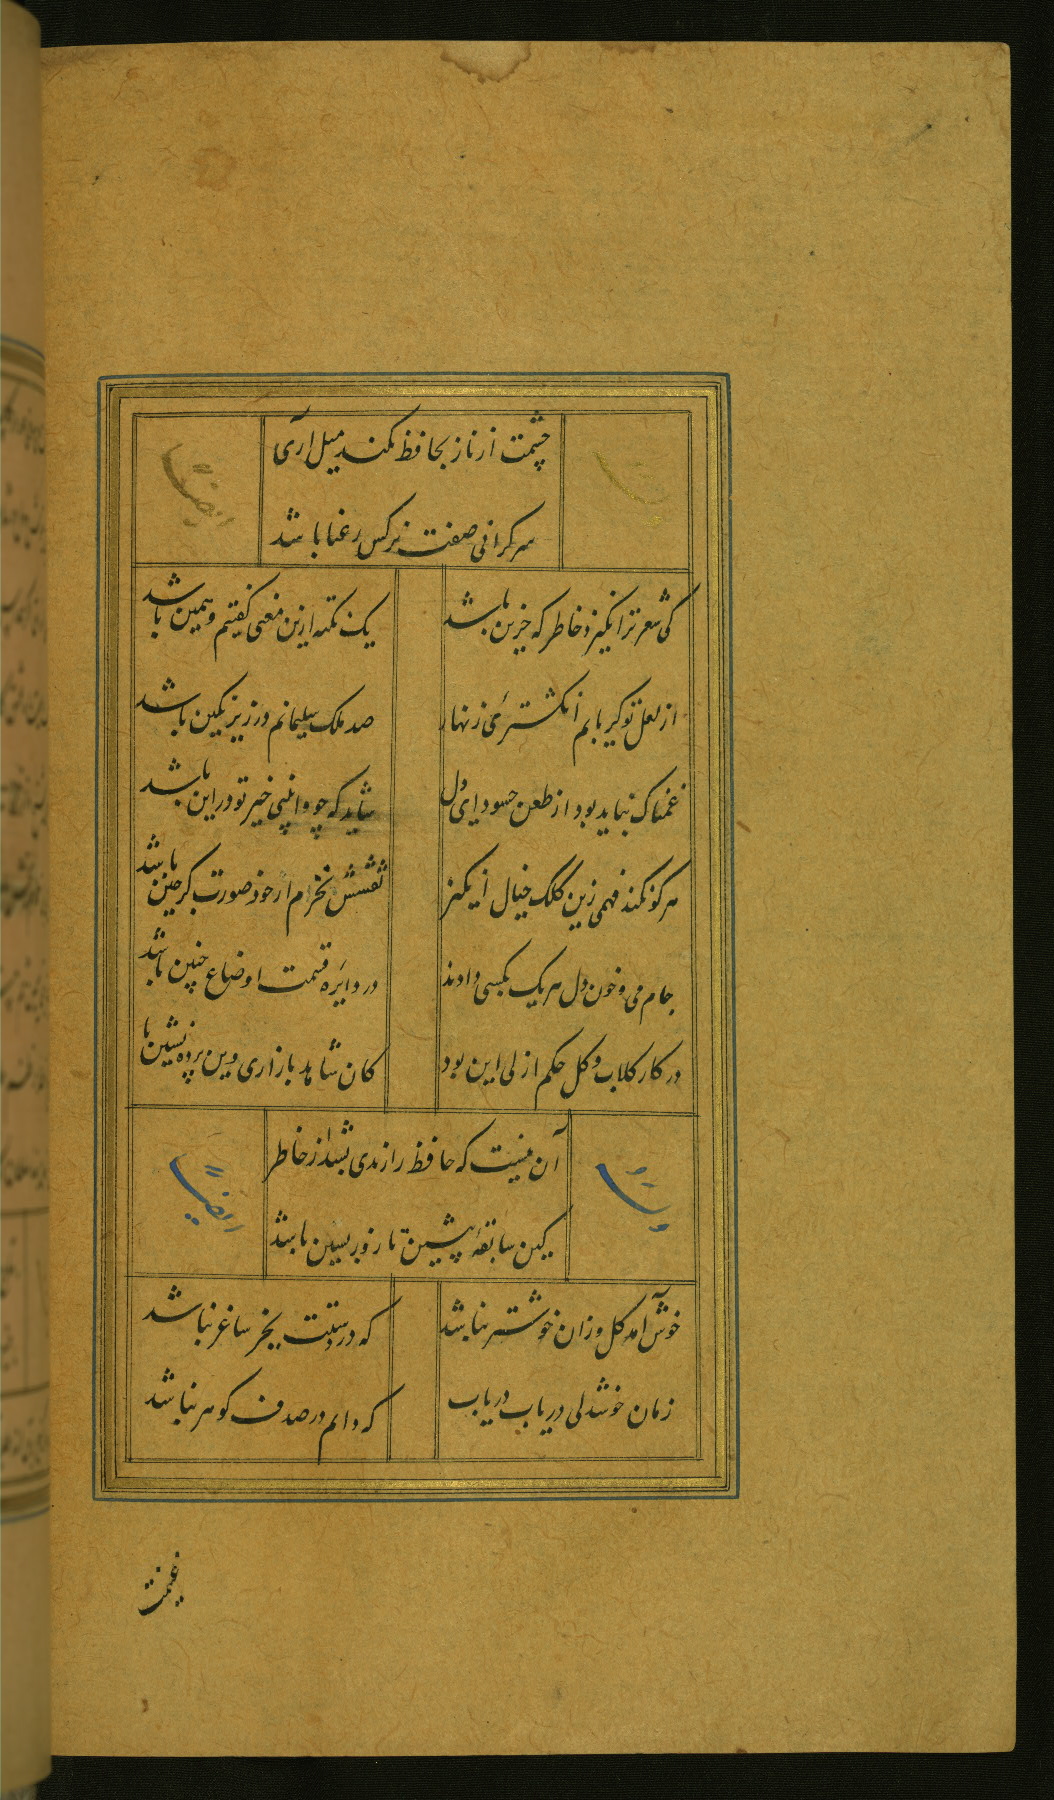 چشمت از ناز بحافظ نکند میل آری
سرکرانی صفت نرکس رعنا باشد
ایضا
کی شعر تر انکیزد خاطر که حزین باشد
یک نکته ازین معنی کفتیم و همین باشد
از لعل تو کر یابم انکشتری زنهار
صد ملک سلیمانم در زیر نکین باشد
غمناک نباید بود از طعن حسود ای دل
شاید که چو وابینی خیر تو در این باشد
هر کو نکند فهمی زین کلک خیال انکیز
نقشش نخرم ار خود صورتکر چین باشد
جام می و خون دل هر یک بکسی دادند
در دایره قسمت اوضاع چنین باشد
در کار کلاب و کل حکم ازلی این بود
کان شاهد بازاری وین پرده نشین با
آن نیست که حافظ را رندی بشد از خاطر
کین سابقهٔ پیشین تا روز پسین باشد
ایضا
خوش آمد کل وزان خوشتر نباشد
که در دستت بجز ساغر نباشد
زمان خوشدلی دریاب دریاب
که دایم در صدف کوهر نباشد
غنیمت